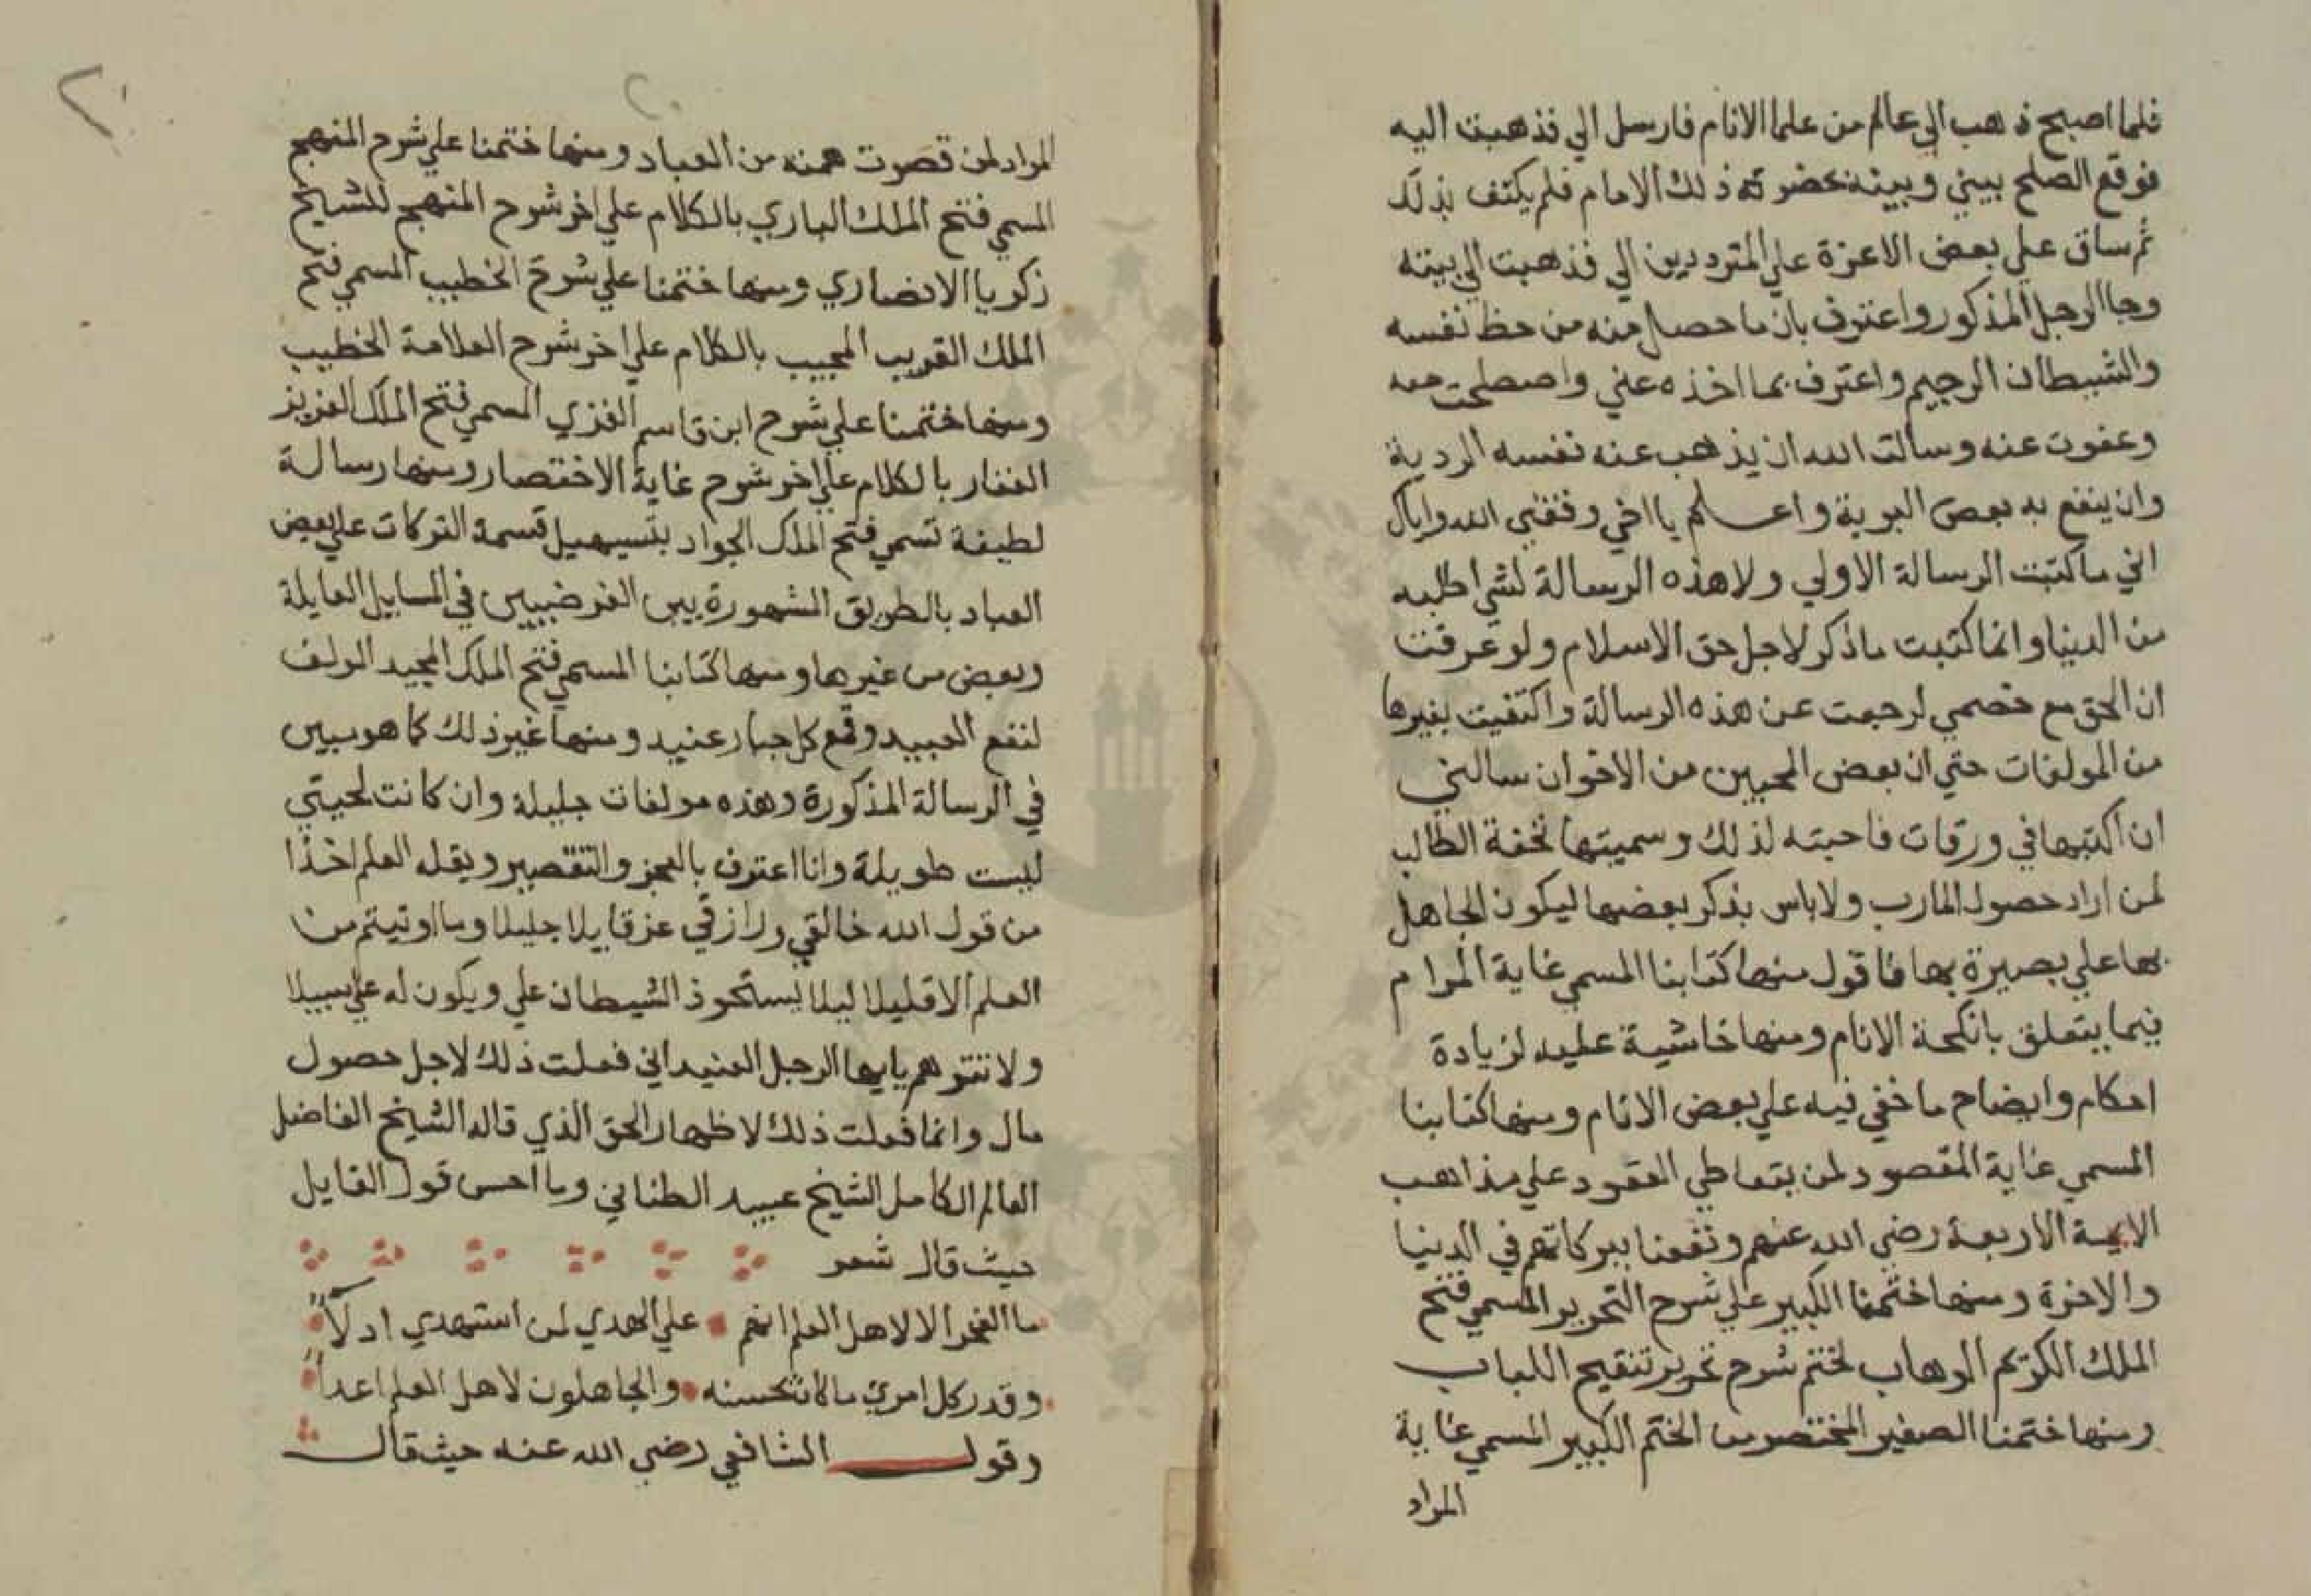 فلما اصبح ذهب الي عالم من علما الانام فارسل الي فذهبت اليه
فوقع الصلح بيني وبينه بحضرة ذلك الامام فلم يكتف بذلك
ثم ساق علي بعض الاعزة علي المترددين الي فذهبت الي بيته
وجا الرجل المذكور واعترف بان ما حصل منه من حظ نفسه
والشيطان الرجيم واعترف بما اخذه عني واصطلحت معه
وعفوت عنه وسالت الله ان يذهب عنه نفسه الردية
وان ينفع به بعض البرية واعلم يا اخي وفقني الله واياك
اني ما كتبت الرسالة الاولي ولا هذه الرسالة لشي اطلبه
من الدنيا وانما كتبت ما ذكر لاجل حق الاسلام ولو عرفت
ان الحق مع خصمي لرجعت عن هذه الرسالة واكتفيت بغيرها
من المولفات حتي ان بعض المحبين من الاخوان سالني
ان اكتبها في ورقات فاجبته لذلك وسميتها تحفة الطالب
لمن اراد حصول المارب ولا باس بذكر بعضها ليكون الجاهل
بها علي بصيرة بها فاقول منها كتابنا المسمي غاية المرام
فيما يتعلق بانكحة الانام ومنها حاشية عليه لزيادة
احكام وايضاح ما خفي فيه علي بعض الانام ومنها كتابنا
المسمي غاية المقصود لمن يتعاطي العقود علي مذاهب
الايمة الاربعة رضي الله عنهم ونفعنا ببركاتهم في الدنيا
والاخرة ومنها ختمنا الكبير علي شرح التحرير المسمي فتح
الملك الكريم الوهاب لختم شرح تحرير تنقيح اللباب
ومنها ختمنا الصغير المختصر من الختم الكبير المسمي غاية
المراد
المراد لمن قصرت همته من العباد ومنها ختمنا علي شرح المنهج
المسمي فتح الملك الباري بالكلام علي اخر شرح المنهج للشيخ
زكريا الانصاري ومنها ختمنا علي شرح الخطيب المسمي فتح
الملك القريب المجيب بالكلام علي اخر شرح العلامة الخطيب
ومنها ختمنا علي شرح ابن قاسم الغزي المسمي فتح الملك العزيز
الغفار بالكلام علي اخر شرح غاية الاختصار ومنها رسالة
لطيفة تسمي فتح الملك الجواد بتسهيل قسمة التركات علي بعض
العباد بالطريق المشهورة بين الفرضيين في المسايل العايلة
وبعض من غيرها ومنها كتابنا المسمي فتح الملك المجيد المولف
لنفع العبيد وقمع كل جبار عنيد ومنها غير ذلك كما هو مبين
في الرسالة المذكورة وهذه مولفات جليلة وان كانت لحيتي
ليست طويلة وانا اعترف بالعجز والتقصير وبقلة العلم اخذا
من قول الله خالقي ورازقي عز قايلا جليلا وما اوتيتم من
العلم الا قليلا ليلا يستحوذ الشيطان علي ويكون له علي سبيلا
ولا تتوهم يايها الرجل العنيد اني فعلت ذلك لاجل حصول
مال وانما فعلت ذلك لاظهار الحق الذي قاله الشيخ الفاضل
العالم الكامل الشيخ عبيد الطناني وما احسن قول القايل
حيث قال شعر
ما الفخر الا لاهل العلم انهم علي الهدي لمن استهدي ادلاء
وقدر كل امرئ ما كان يحسنه والجاهلون لاهل العلم اعداء
وقول الشافعي رضي الله عنه حيث قال